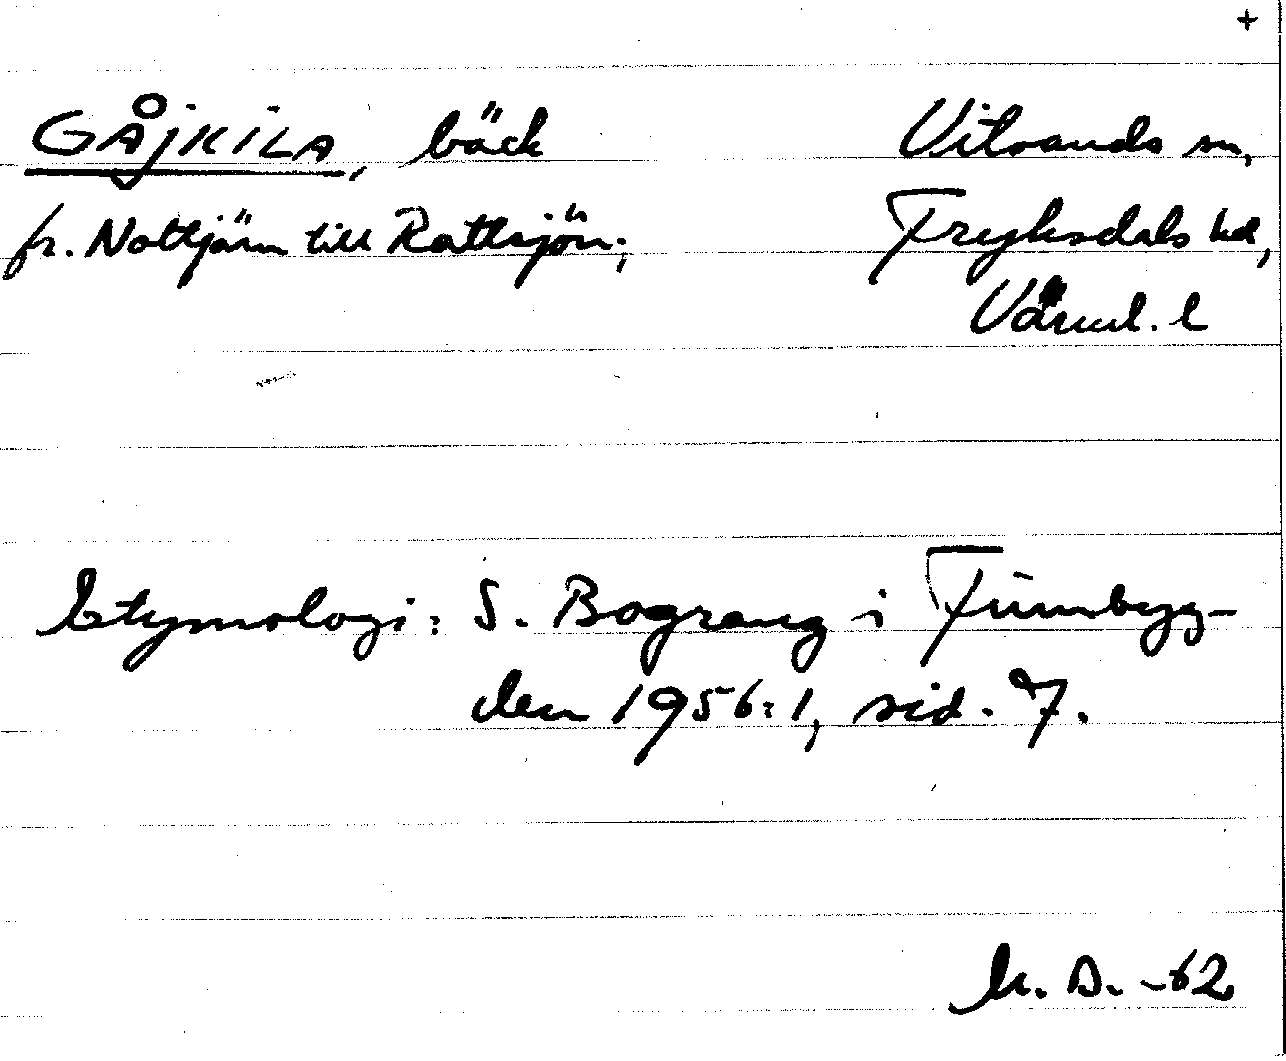 +
GÅJKILA, bäck
Vitsands sn,
fr. Nottjärn till Rattsjön;
Fryksdals hd,
Värml. l
Etymologi: S. Bograng i Finnbyg-
den 1956:1, sid. 7.
D. -62